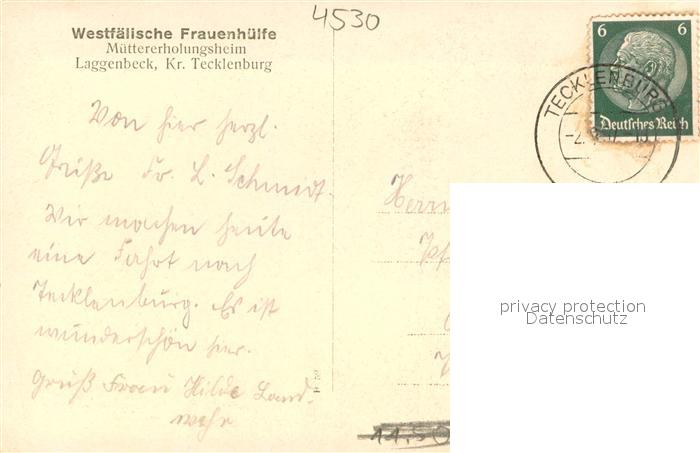 4530
Westfälische Frauenhülfe
Müttererholungsheim
Laggenbeck, Kr. Tecklenburg
6 6
Deutsches Reich
TECKLENBURG
Von hier herzl.
Grüße Fr. L. Schmidt.
Wir machen heute
eine Fahrt nach
Tecklenburg. Es ist
wunderschön hier.
Gruß Frau Hilde Land-
wehr
Herrn
privacy protection
Datenschutz
11.50